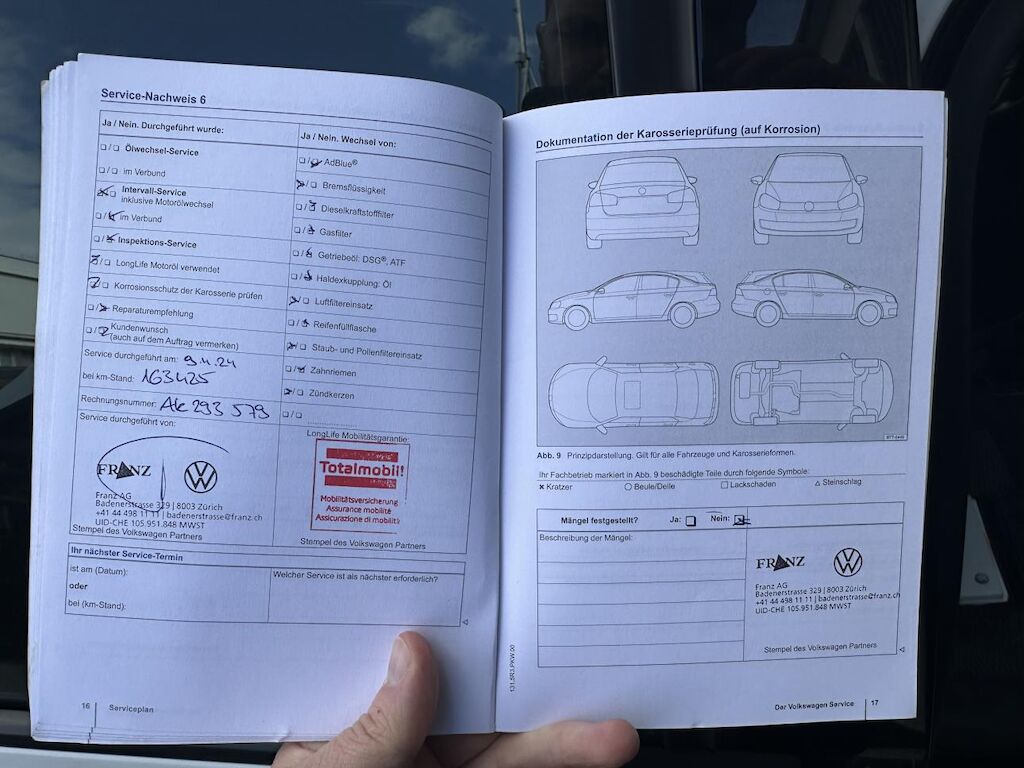 Service-Nachweis 6
Ja / Nein. Durchgeführt wurde:
Ölwechsel-Service
im Verbund
Intervall-Service
inklusive Motorölwechsel
im Verbund
Inspektions-Service
LongLife Motoröl verwendet
Korrosionsschutz der Karosserie prüfen
Reparaturempfehlung
Kundenwunsch
(auch auf dem Auftrag vermerken)
Service durchgeführt am: 9.11.24
bei km-Stand: 163425
Rechnungsnummer: AK 293 579
Service durchgeführt von:
FRANZ
Franz AG
Badenerstrasse 329 | 8003 Zürich
+41 44 498 11 11 | badenerstrasse@franz.ch
UID-CHE 105.951.848 MWST
Stempel des Volkswagen Partners
Ja / Nein. Wechsel von:
AdBlue®
Bremsflüssigkeit
Dieselkraftstofffilter
Gasfilter
Getriebeöl: DSG®, ATF
Haldexkupplung: Öl
Luftfiltereinsatz
Reifenfüllflasche
Staub- und Pollenfiltereinsatz
Zahnriemen
Zündkerzen
LongLife Mobilitätsgarantie:
Totalmobil!
Mobilitätsversicherung
Assurance mobilité
Assicurazione di mobilità
Stempel des Volkswagen Partners
Ihr nächster Service-Termin
ist am (Datum):
oder
bei (km-Stand):
Welcher Service ist als nächster erforderlich?
16 Serviceplan
Dokumentation der Karosserieprüfung (auf Korrosion)
Abb. 9 Prinzipdarstellung. Gilt für alle Fahrzeuge und Karosserieformen.
Ihr Fachbetrieb markiert in Abb. 9 beschädigte Teile durch folgende Symbole:
Kratzer Beule/Delle Lackschaden Steinschlag
Mängel festgestellt? Ja: Nein:
Beschreibung der Mängel:
FRANZ
Franz AG
Badenerstrasse 329 | 8003 Zürich
+41 44 498 11 11 | badenerstrasse@franz.ch
UID-CHE 105.951.848 MWST
Stempel des Volkswagen Partners
131.5R3.PKW.00
Der Volkswagen Service 17